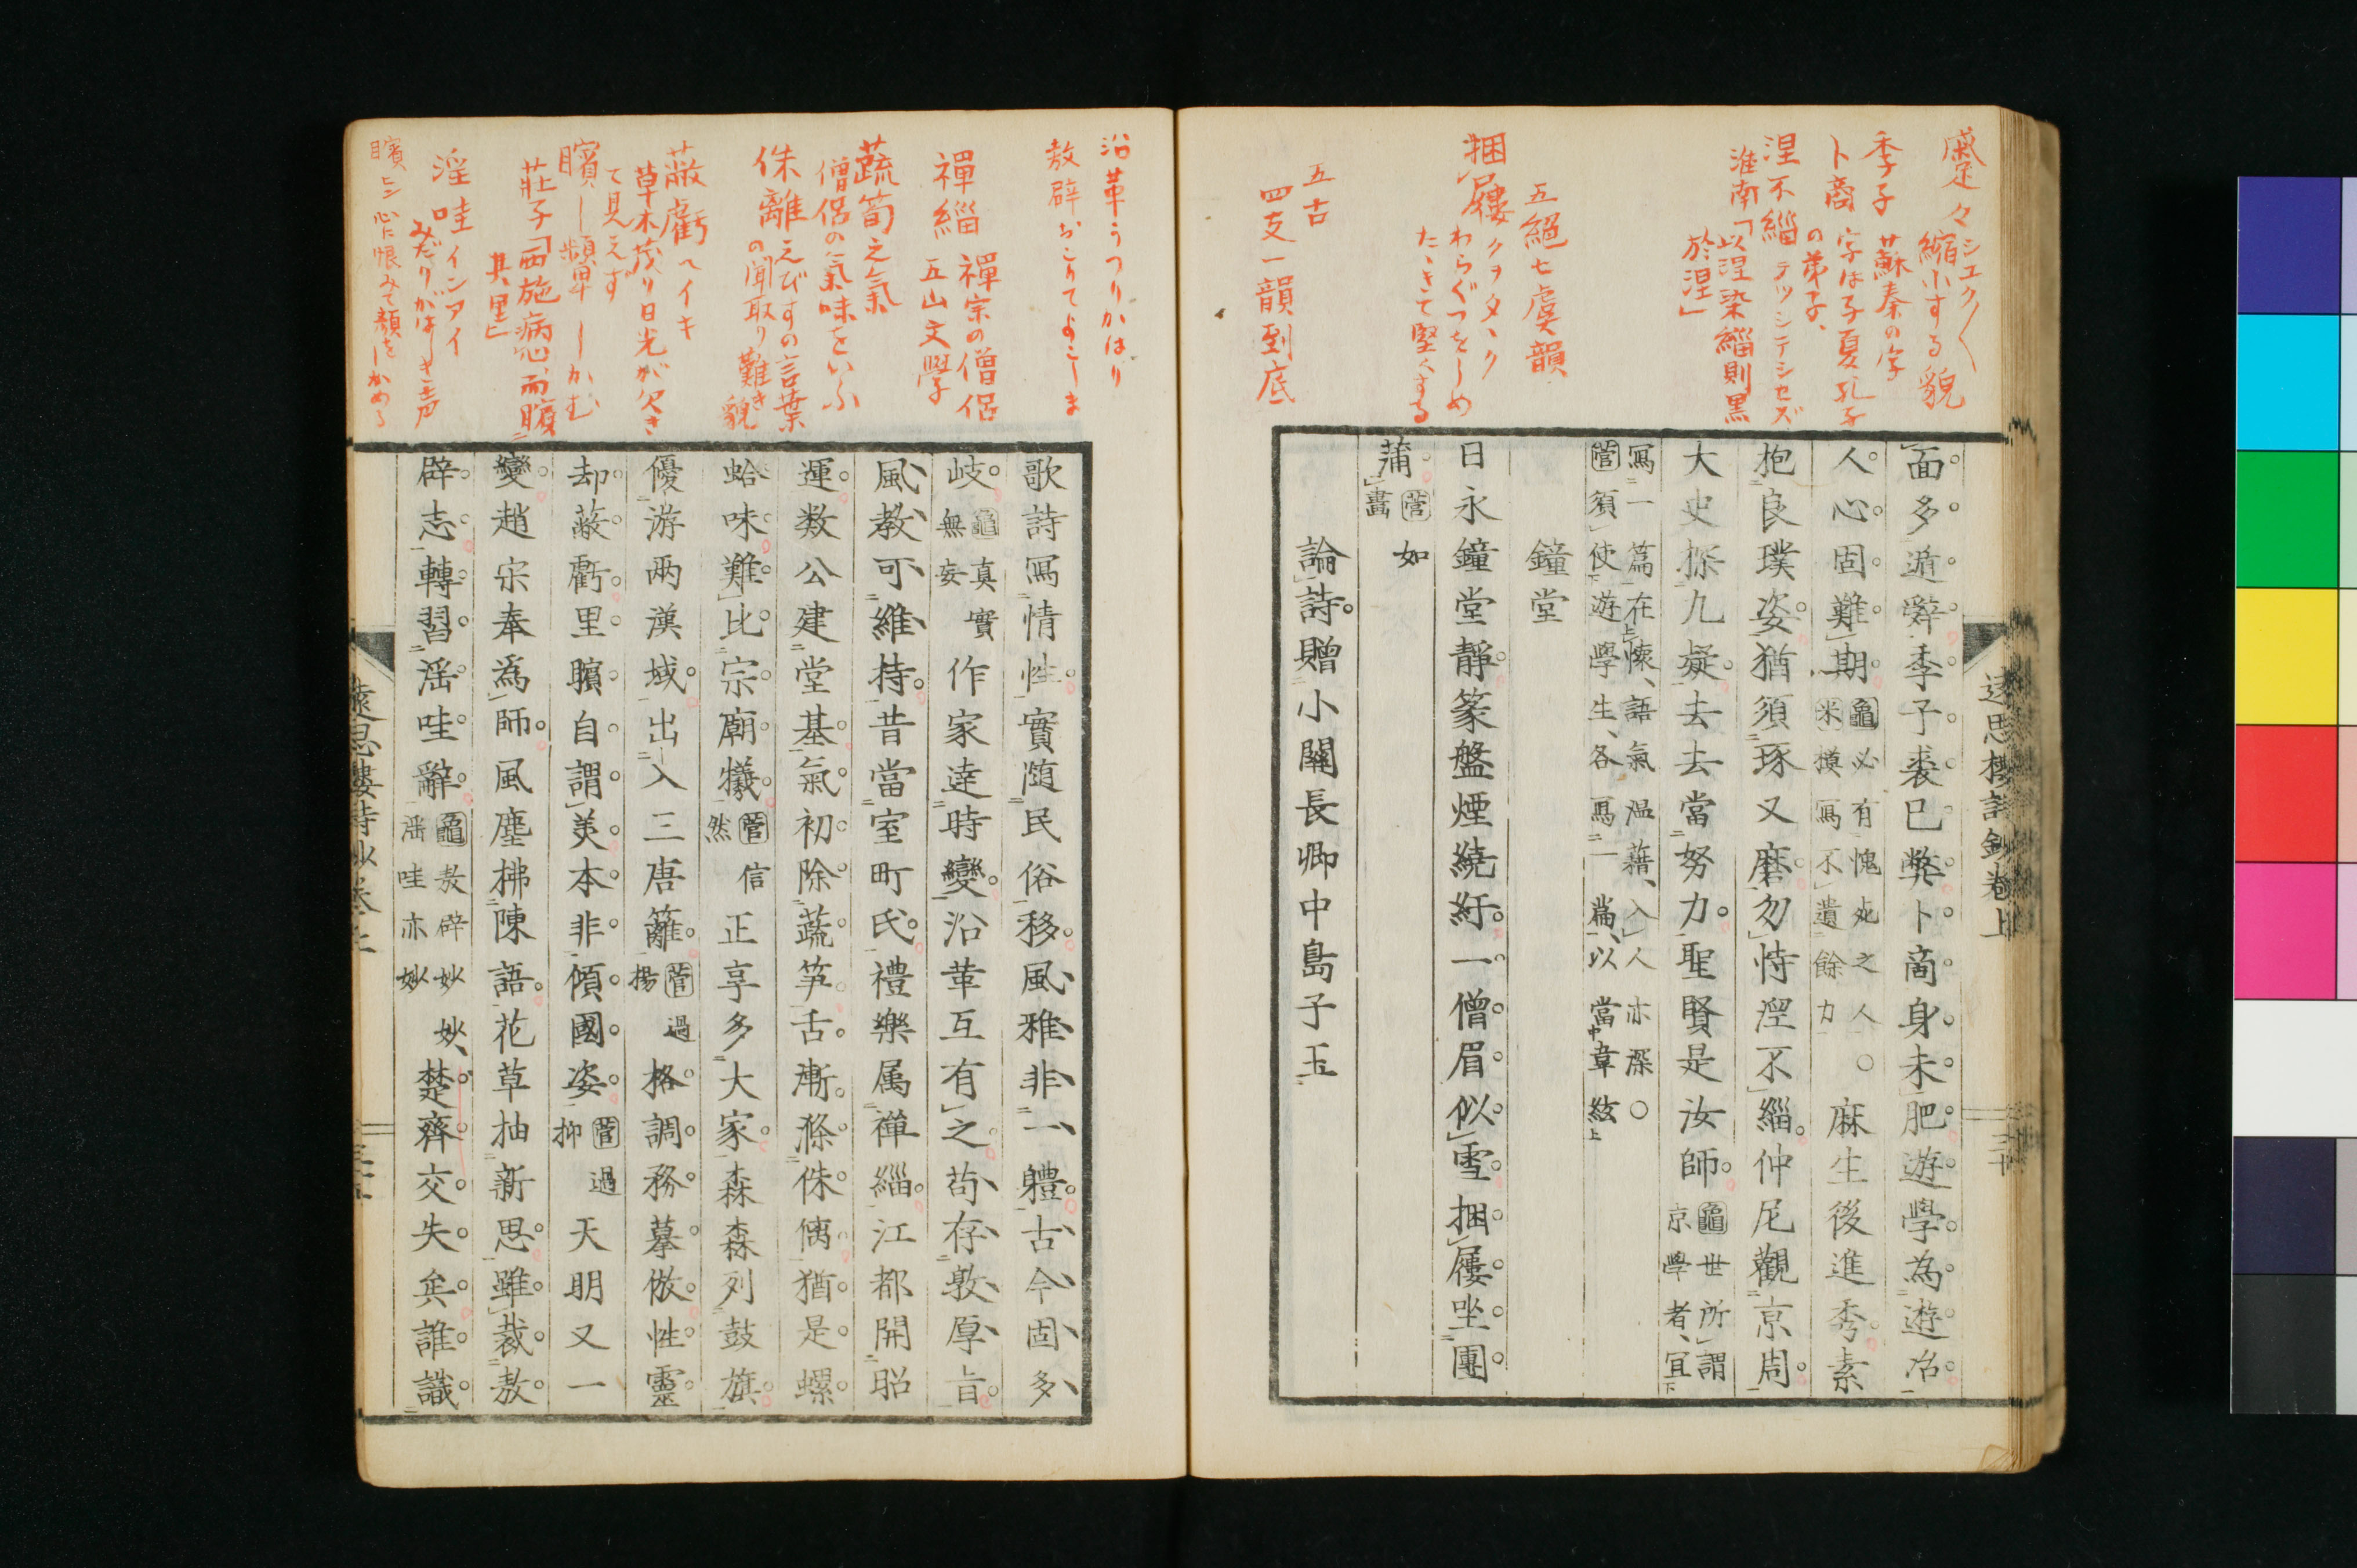 蹙々シユク〱
縮小する貌
季子 蘇秦の字
卜商 字は子夏孔子
の弟子、
涅不緇 テツシテシセズ
淮南「以涅染緇則黒
於涅」
五絕七虞韻、
捆屨 クヲタヽク
わらぐつをしめ
たゝきて堅くする
五古
四支一韻到底
面多遁辭季子裘已弊卜商身未肥遊學為遊冶
人心固難期
龜必有愧此之人
米摸寫不遺餘力
○麻生後進秀素
抱良璞姿猶須琢又磨勿恃涅不緇仲尼觀京周
大史探九疑去去當努力聖賢是汝師
龜世所謂
京學者、宜
寫一篇在懐、語氣温藉、入人亦深○
菅須使遊學生、各寫一篇、以當韋絃
鐘堂
日永鐘堂靜篆盤煙繞紆一僧眉似雪捆屨坐團
蒲
菅如
畫
論詩贈小關長卿中島子玉
遠思樓詩鈔卷上
三十
沿革うつりかはり
敖辟おこりてよこしま
禪緇 禪宗の僧侶
五山文學
蔬筍之氣
僧侶の氣味をいふ
侏離 えびすの言葉
の聞取り難き貌
蔽虧 ヘイキ
草木茂り日光が欠き
て見えず
矉―顰―かむ
莊子「西施病心而矉
其里」
淫哇 インアイ
みだりがはしき声
矉ヒン心に恨みて顔をしかめる
歌詩寫情性實隨民俗移風雅非一體古今固多
岐
龜真實
無妄
作家達時變沿革互有之苟存敦厚旨
風教可維持昔當室町氏禮樂属禪緇江都開昭
運数公建堂基氣初除蔬笋舌漸滌侏㒧猶是螺
蛤味難比宗廟犧
菅信
然
正享多大家森森列鼓旗
優游兩漢域出入三唐籬
菅過
揚
格調務摹倣性靈
却蔽虧里矉自謂美本非傾國姿
菅過
抑
天明又一
變趙宋奉為師風塵拂陳語花草抽新思雖裁敖
辟志轉習淫哇辭
龜敖辟妙妙
淫哇亦妙妙、
楚齊交失矣誰識